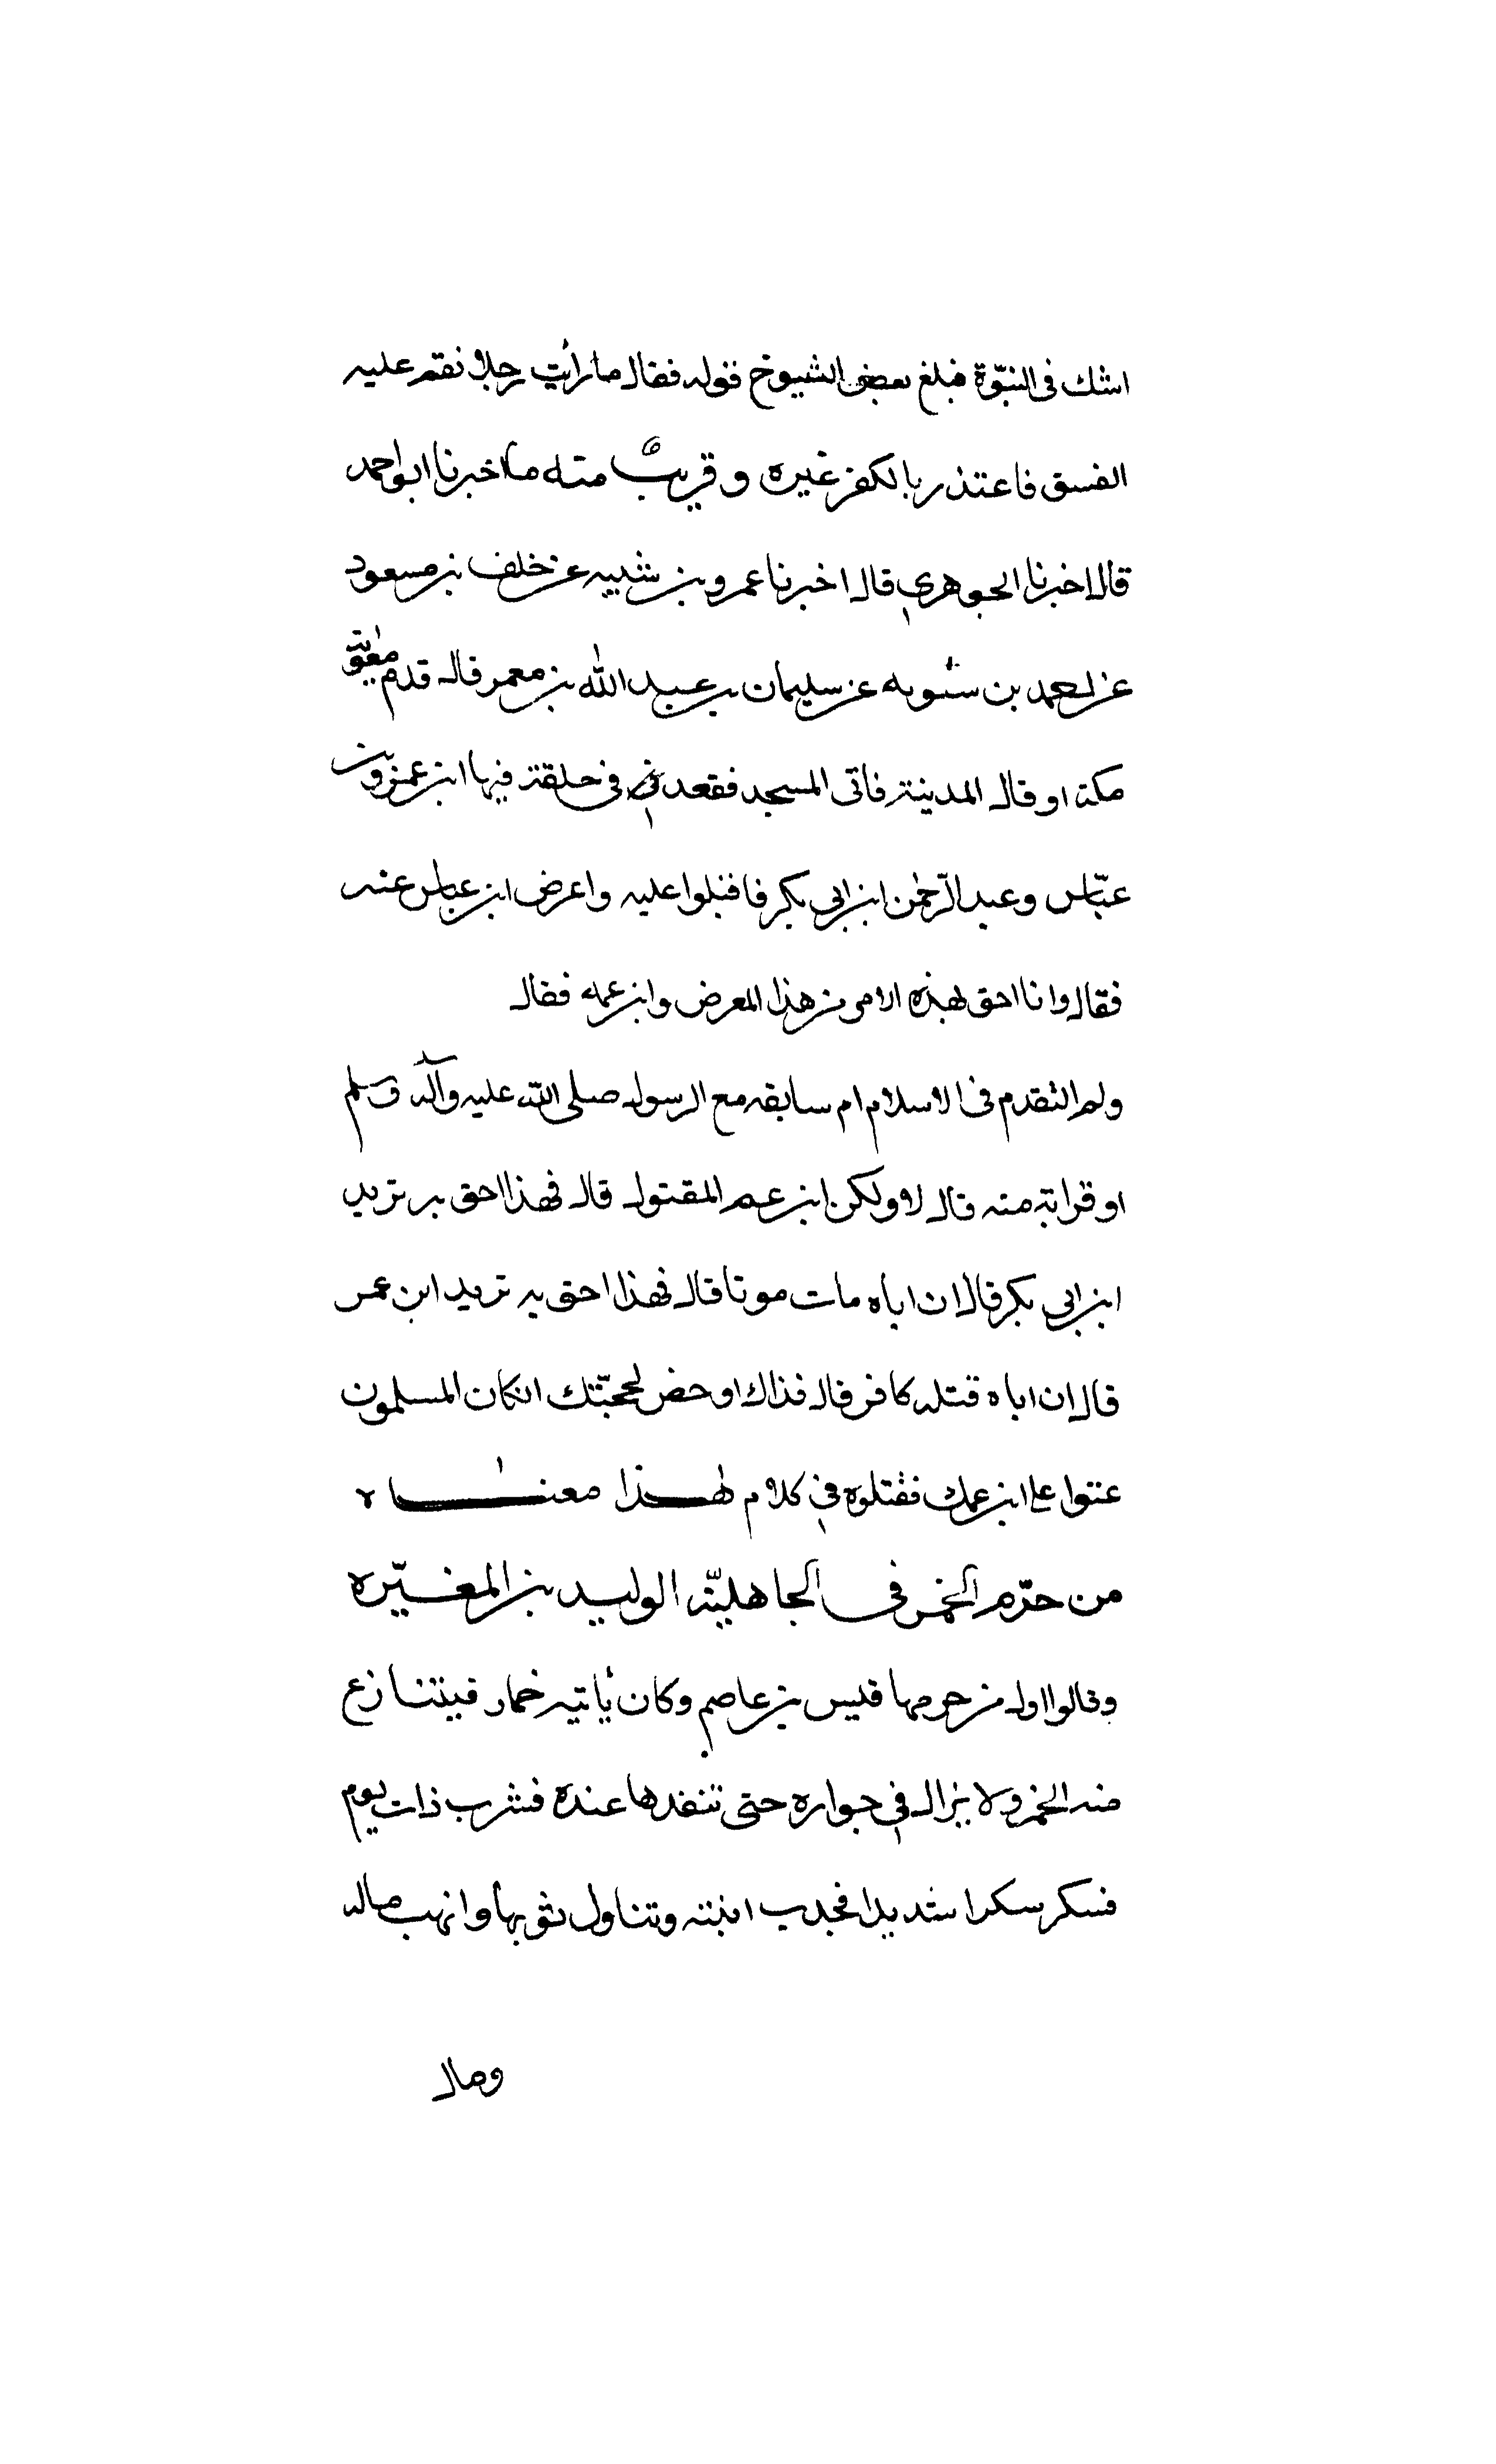 اشك فى النبّوة فبلغ بعض الشيوخ قوله فقال ما رأيت رجلا نقم عليه
الفسق فاعتذر بالكفر غيره وقريب منه ما اخبرنا ابو احمد
قال اخبرنا الجوهرى قال اخبرنا عمرو بن شبيه عن خلف بن مسعود
بن سليمان بن عبد الله بن معمر قال قدم معٰوية
مكة او قال المدينة فاتى المسجد فقعد فى فى حلقة فيها ابن عمر وبن
عبّاس وعبد الرّحمٰن ابن ابى بكر فاقبلوا عليه واعرض ابن عباس عنه
فقال وانا احق لهذه الامر من هذا المعرض وابن عمه فقال
ولم التقدم فى الاسلام ام سابقه مع الرسول صلى الله عليه وآله وسلم
او قرابة منه قال لا ولكن ابن عم المقتول قال فهذا احق به تريد
ابن ابى بكر قال ان اباه مات موتا قال فهذا احق به تريد ابن عمر
قال ان اباه قتله كافر قال فذاك اوحض لحجّتك ان كان المسلمون
عتبوا على ابن عمك فقتلوه فى كلام هذا معنٰاه
من حرّم الخمر فى الجاهليّة الوليد بن المغيّره
وقالوا اول من حرمها قيس بن عاصم وكان يأتيه خمار فيتنازع
منه الخمر ولا يزال فى جواره حتى تنفدها عنده فشرب ذات يوم
فسكر سكرا شديدا فجذب ابنته وتناول ثوبها وانهب ماله
وقال